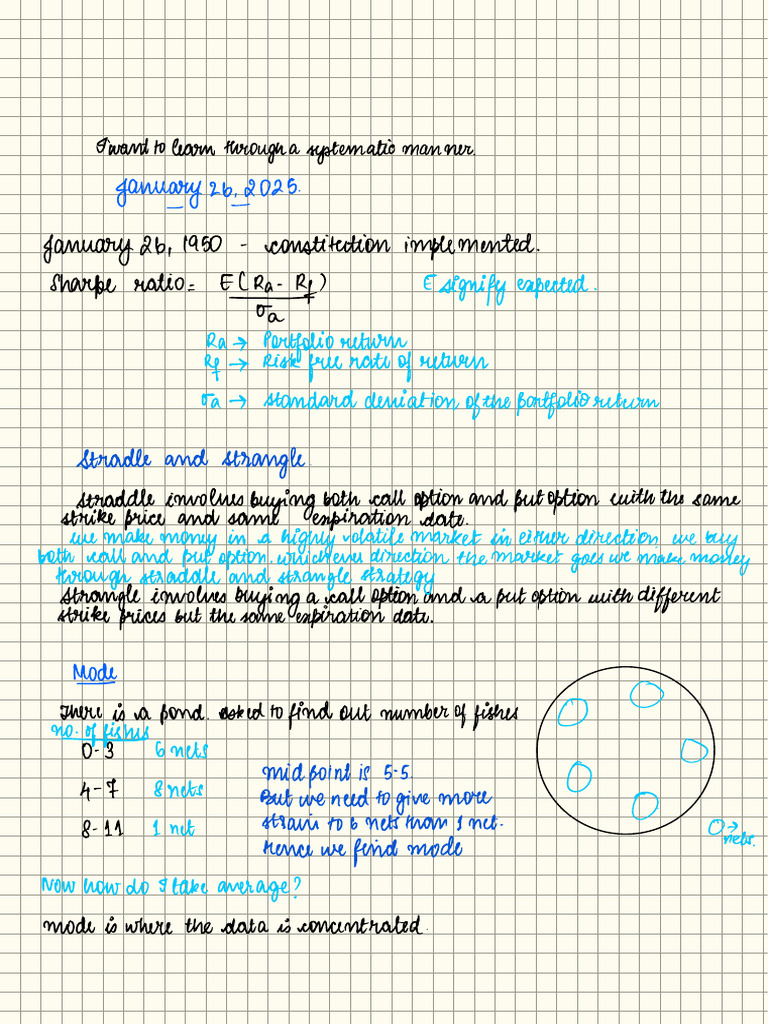 I want to learn through a systematic manner.
January 26, 2025.
January 26, 1950 - constitection implemented.
Sharpe ratio = E(Ra - Rf) / σa
E signify expected.
Ra → Portfolio return
Rf → Risk free rate of return
σa → standard deviation of the portfolio return
Stradle and strangle.
Straddle involves buying both call option and put option with the same
strike price and same expiration date.
we make money in a highly volatile market in either direction we buy
both call and put option. whichever direction the market goes we make money
through straddle and strangle strategy
Strangle involves buying a call option and a put option with different
strike prices but the same expiration date.
Mode
There is a pond. asked to find out number of fishes
no. of fishes
0-3 6 nets
4-7 8 nets
8-11 1 net
mid point is 5.5.
But we need to give more
strain to 6 nets than 1 net.
Hence we find mode
O→ nets.
Now how do I take average?
mode is where the data is concentrated.